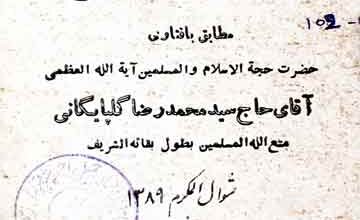 102
مطابق بافتاوی
حضرت حجة الاسلام والمسلمین آیة الله العظمی
آقای حاج سید محمد رضا گلپایگانی
متع الله المسلمین بطول بقائه الشریف
شوال المکرم ۱۳۸۹